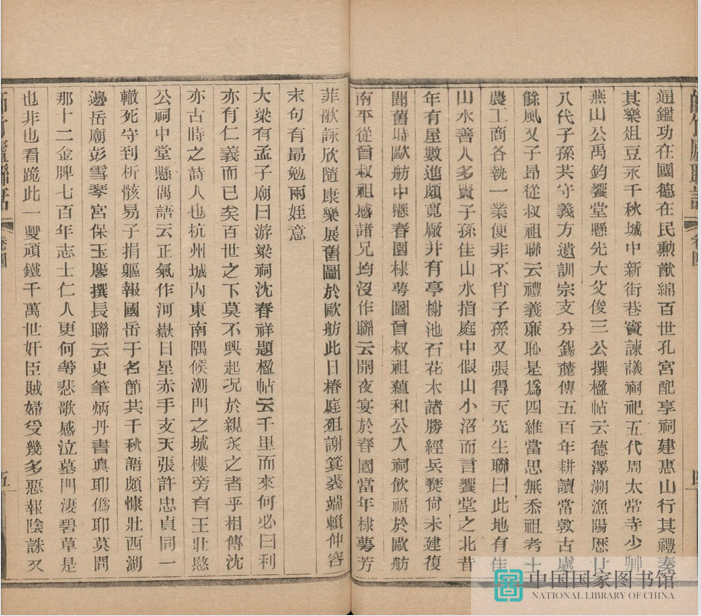 通鑑功在國德在民勳猷綿百世孔宮配享祠建惠山行其禮奏
其樂俎豆永千秋城中新街巷竇諫議祠祀五代周太常寺少卿
燕山公禹鈞饗堂懸先大父俊三公撰楹帖云德澤溯漁陽歷廿
八代子孫共守義方遺訓宗支分錫麓傳五百年耕讀常敦古處
餘風又子昂從叔祖聯云禮義廉恥是為四維當思無忝祖考士
農工商各執一業便非不肖子孫又張得天先生聯曰此地有佳
山水善人多賢子孫佳山水指庭中假山小沼而言饗堂之北昔
年有屋數進頗寬廠井有亭榭池石花木諸勝經兵燹尚未建復
聞舊時歐舫中懸春園棣萼圖曾叔祖蘊和公入祠飲福於歐舫
南平從曾叔祖感諸兄均沒作聯云開夜宴於春園當年棣萼芳
菲歌詠欣隨康樂展舊圖於歐舫此日椿庭殂謝箕裘端賴仲容
末句有勗勉兩姪意
大梁有孟子廟曰游梁祠沈春祥題楹帖云千里而來何必曰利
亦有仁義而已矣百世之下莫不興起況於親炙之者乎相傳沈
亦古時之詩人也杭州城內東南隅候潮門之城樓旁有王壯愍
公祠中堂懸偶語云正氣作河嶽日星赤手支天張許忠貞同一
轍死守到析骸易子捐軀報國岳于名節共千秋語頗慷壯西湖
邊岳廟彭雪琴宮保玉麐撰長聯云史筆炳丹書真耶偽耶莫問
那十二金牌七百年志士仁人更何等悲歌感泣墓門淒碧草是
也非也看跪此一雙頑鐵千萬世奸臣賊婦受幾多惡報陰誅又
師竹廬聯話
卷四
四
師竹廬聯話
卷四
五
中国国家图书馆
NATIONAL LIBRARY OF CHINA